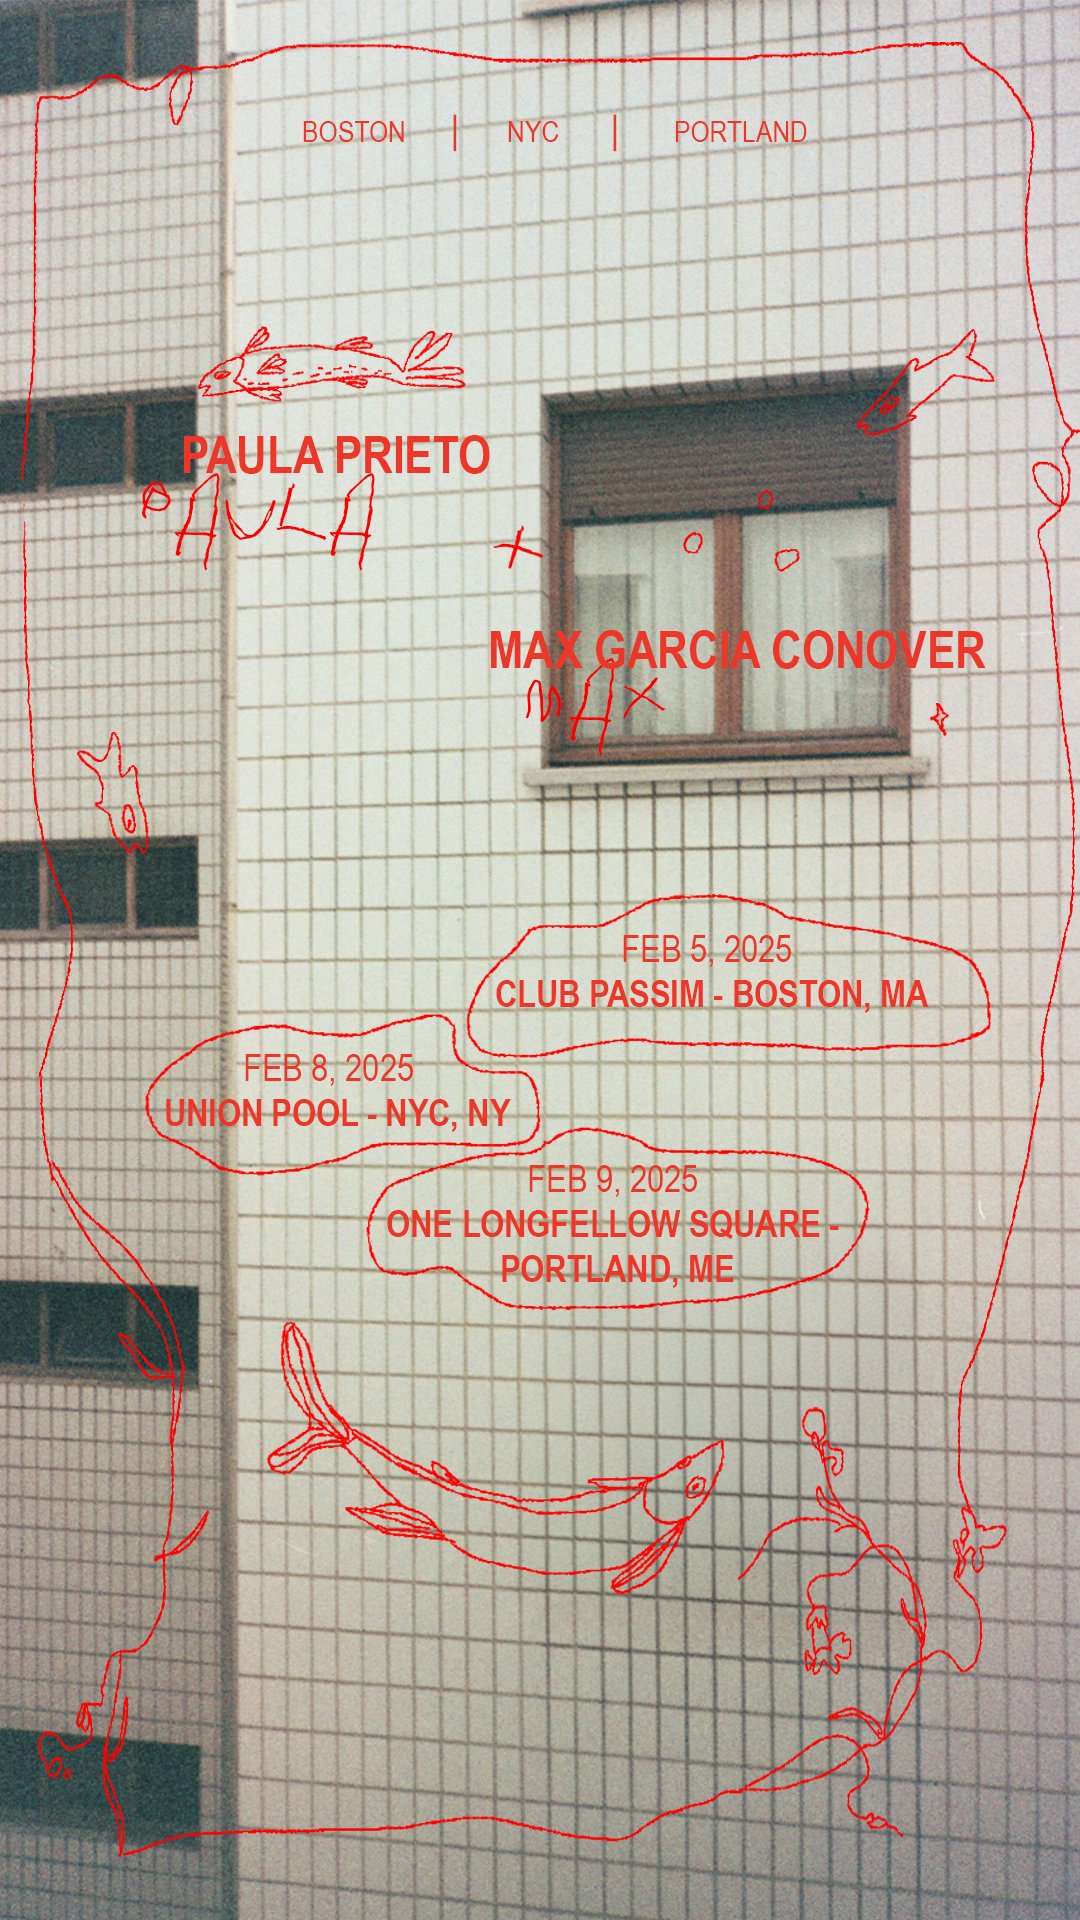 BOSTON | NYC | PORTLAND
PAULA PRIETO
PAULA
+
MAX GARCIA CONOVER
MAX
FEB 5, 2025
CLUB PASSIM - BOSTON, MA
FEB 8, 2025
UNION POOL - NYC, NY
FEB 9, 2025
ONE LONGFELLOW SQUARE -
PORTLAND, ME